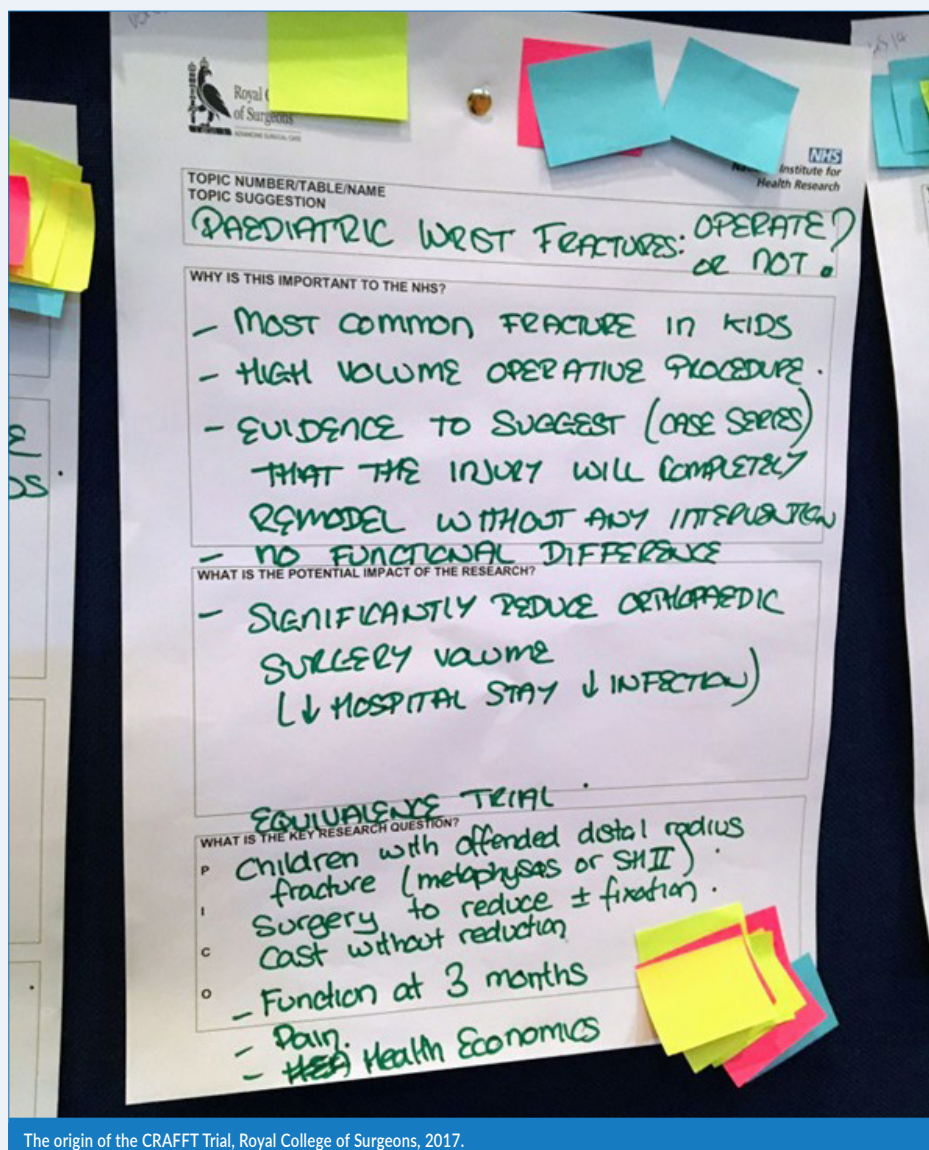 Royal
of Surgeons
ADVANCING SURGICAL CARE
NHS
Institute for
Health Research
TOPIC NUMBER/TABLE/NAME
TOPIC SUGGESTION
PAEDIATRIC WRIST FRACTURES: OPERATE?
OR NOT.
WHY IS THIS IMPORTANT TO THE NHS?
- MOST COMMON FRACTURE IN KIDS
- HIGH VOLUME OPERATIVE PROCEDURE.
- EVIDENCE TO SUGGEST (CASE SERIES)
THAT THE INJURY WILL COMPLETELY
REMODEL WITHOUT ANY INTERVENTION
- NO FUNCTIONAL DIFFERENCE
WHAT IS THE POTENTIAL IMPACT OF THE RESEARCH?
- SIGNIFICANTLY REDUCE ORTHOPAEDIC
SURGERY VOLUME
(↓ HOSPITAL STAY ↓ INFECTION)
EQUIVALENCE TRIAL
WHAT IS THE KEY RESEARCH QUESTION?
P Children with offended distal radius
fracture (metaphyses or SH II).
I Surgery to reduce ± fixation.
C Cast without reduction
O - Function at 3 months
- Pain.
- Health Economics
The origin of the CRAFFT Trial, Royal College of Surgeons, 2017.